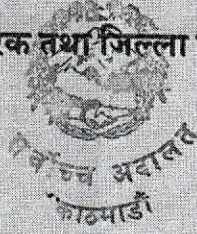 क तथा जिल्ला
सर्वोच्च अदालत
काठमाडौं